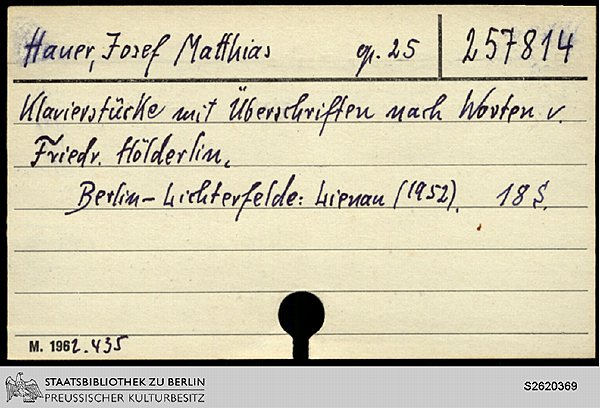 Hauer, Josef Matthias op. 25 257814
Klavierstücke mit Überschriften nach Worten v.
Friedr. Hölderlin.
Berlin-Lichterfelde: Lienau (1952). 18 S.
M. 1962.435
STAATSBIBLIOTHEK ZU BERLIN
PREUSSISCHER KULTURBESITZ
S2620369